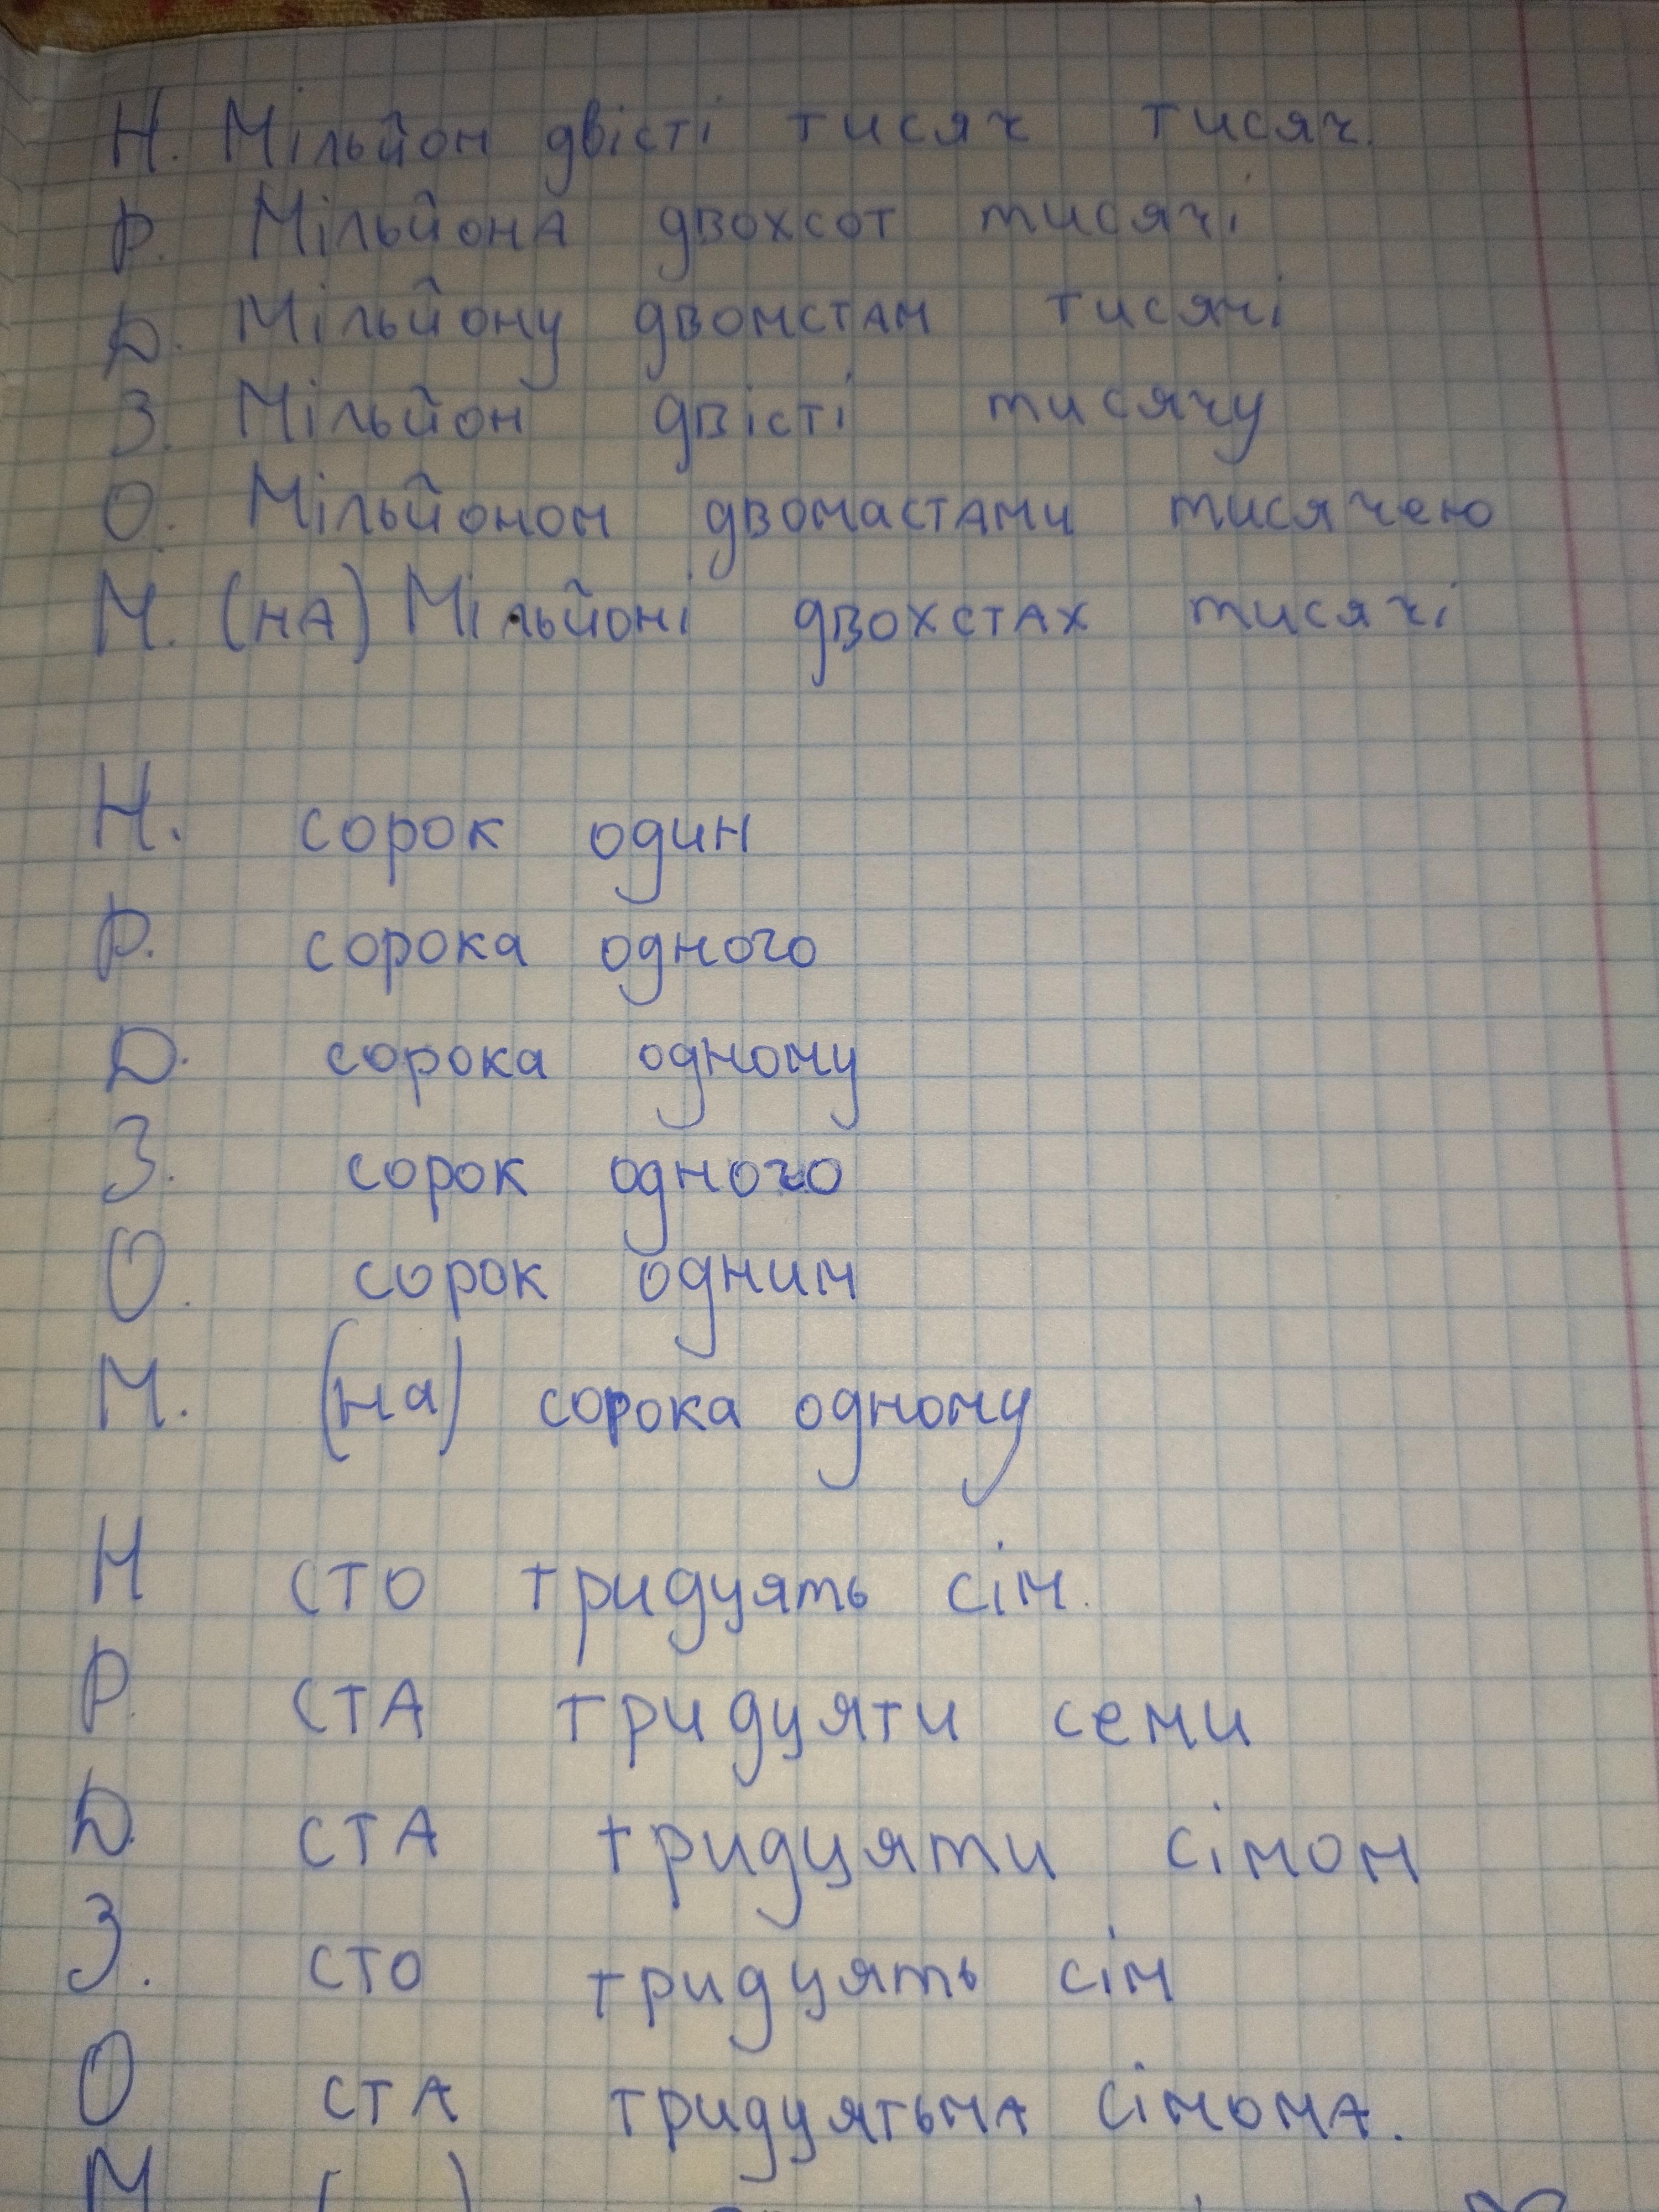 Н. Мільйон двісті тисяч тисяч.
Р. Мільйона двохсот тисячі
Д. Мільйону двомстам тисячі
З. Мільйон двісті тисячу
О. Мільйоном двомастами тисячею
М. (на) Мільйоні двохстах тисячі
Н. сорок один
Р. сорока одного
Д. сорока одному
З. сорок одного
О. сорок одним
М. (на) сорока одному
Н сто тридцять сім.
Р. ста тридцяти семи
Д. ста тридцяти сімом
З. сто тридцять сім
О ста тридцятьма сімома.
М (